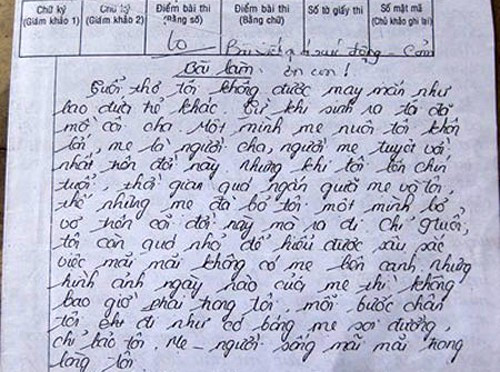 Chữ ký Chữ ký Điểm bài thi Điểm bài thi Số tờ giấy thi Số mật mã
(Giám khảo 1) (Giám khảo 2) (Bằng số) (Bằng chữ) (Chủ khảo ghi lại)
10 Bài viết quá xúc động - Cảm
Bài làm. ơn con!
Tuổi thơ tôi không được may mắn như
bao đứa trẻ khác. Từ khi sinh ra tôi đã
mồ côi cha. Một mình mẹ nuôi tôi khôn
lớn, mẹ là người cha, người mẹ tuyệt vời
nhất trên đời này. Nhưng khi tôi lên chín
tuổi, thời gian quá ngắn người mẹ và tôi,
thế nhưng mẹ đã bỏ tôi một mình bơ
vơ trên cõi đời này mà ra đi. Chỉ 9 tuổi,
tôi còn quá nhỏ để hiểu được sâu sắc
việc mãi mãi không có mẹ bên cạnh, nhưng
hình ảnh ngày nào của mẹ thì không
bao giờ phai trong tôi, mỗi bước chân
tôi đi như có bóng mẹ soi đường,
chỉ bảo tôi. Mẹ - người sống mãi mãi trong
lòng tôi.